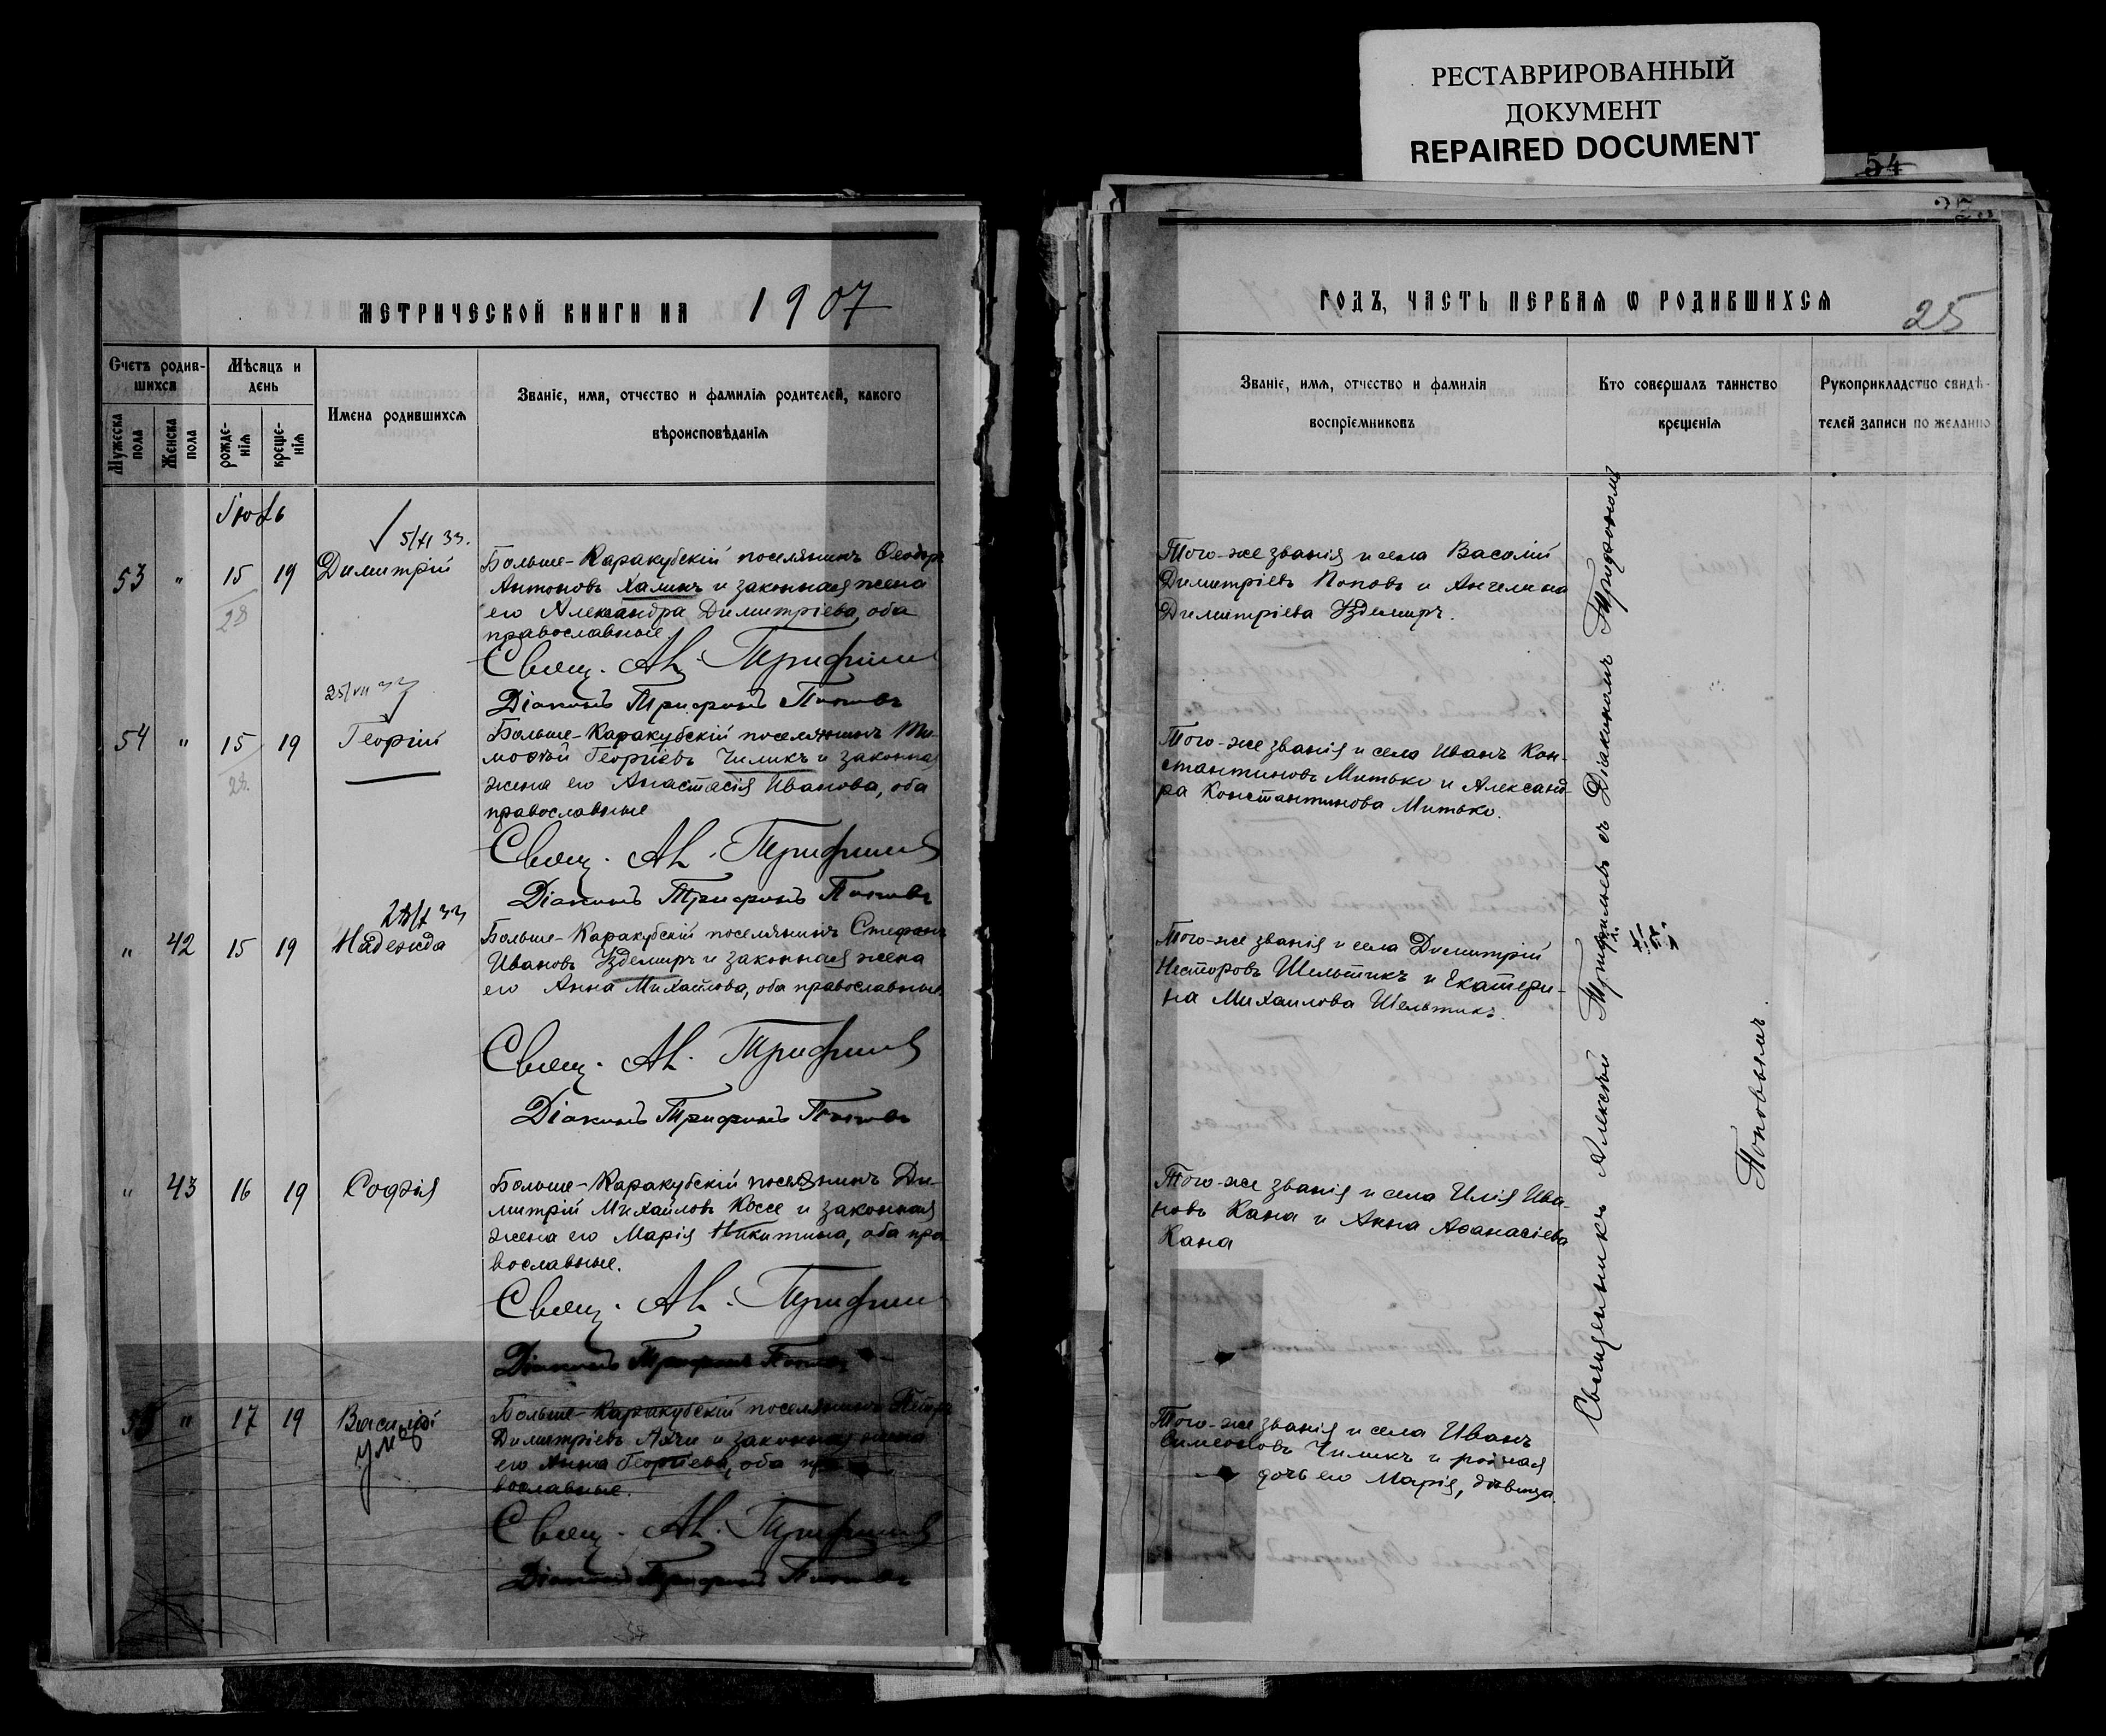 РЕСТАВРИРОВАННЫЙ
ДОКУМЕНТ
REPAIRED DOCUMENT
54
МЕТРИЧЕСКОЙ КНИГИ НА 1907
Счетъ родив-
шихся
Мѣсяцъ и
день
Имена родившихся
Званіе, имя, отчество и фамилія родителей, какого
вѣроисповѣданія
Мужеска
пола
Женска
пола
рожде-
нія
креще-
нія
Іюль
5/XI 33.
53 " 15 19 Димитрій
28
Больше-Каракубскій поселянинъ Ѳеодоръ
Антоновъ Халикъ и законная жена
его Александра Димитріева, оба
православные.
Свящ. Ал. Трифильевъ
Діаконъ Трифонъ Поповъ
25/VII 33
54 " 15 19 Георгій
28.
Больше-Каракубскій поселянинъ Ти-
моѳей Георгіевъ Чиликъ и законная
жена его Анастасія Иванова, оба
православные
Свящ. Ал. Трифильевъ
Діаконъ Трифонъ Поповъ
" 42 15 19 Надежда
Больше-Каракубскій поселянинъ Стефанъ
Ивановъ Уздемиръ и законная жена
его Анна Михайлова, оба православные.
Свящ. Ал. Трифильевъ
Діаконъ Трифонъ Поповъ
" 43 16 19 Софія
Больше-Каракубскій поселянинъ Ди-
митрій Михайловъ Коссе и законная
жена его Марія Никитина, оба пра-
вославные.
Свящ. Ал. Трифильевъ
Діаконъ Трифонъ Поповъ
55 " 17 19 Василій
умеръ
Больше-Каракубскій поселянинъ Петръ
Димитріевъ и законная жена
его Анна Георгіева, оба пра-
вославные.
Свящ. Ал. Трифильевъ
Діаконъ Трифонъ Поповъ
ГОДЪ, ЧАСТЬ ПЕРВАЯ Ѡ РОДИВШИХСЯ
25
Званіе, имя, отчество и фамилія
воспріемниковъ
Кто совершалъ таинство
крещенія
Рукоприкладство свидѣ-
телей записи по желанію
Того-же званія и села Василій
Димитріевъ Поповъ и Ангелина
Димитріева Уздемиръ.
Того-же званія и села Иванъ Кон-
стантиновъ Митько и Александ-
ра Константинова Митько.
Того-же званія и села Димитрій
Несторовъ Шельтикъ и Екатери-
на Михаилова Шельтикъ.
Того-же званія и села Илія Ива-
новъ Кана и Анна Аѳанасіева
Кана
Того-же званія и села Иванъ
Симеоновъ Чиликъ и родная
дочь его Марія, дѣвица.
Священникъ Алексѣй Трифильевъ съ Діакономъ Трифономъ
Поповымъ.